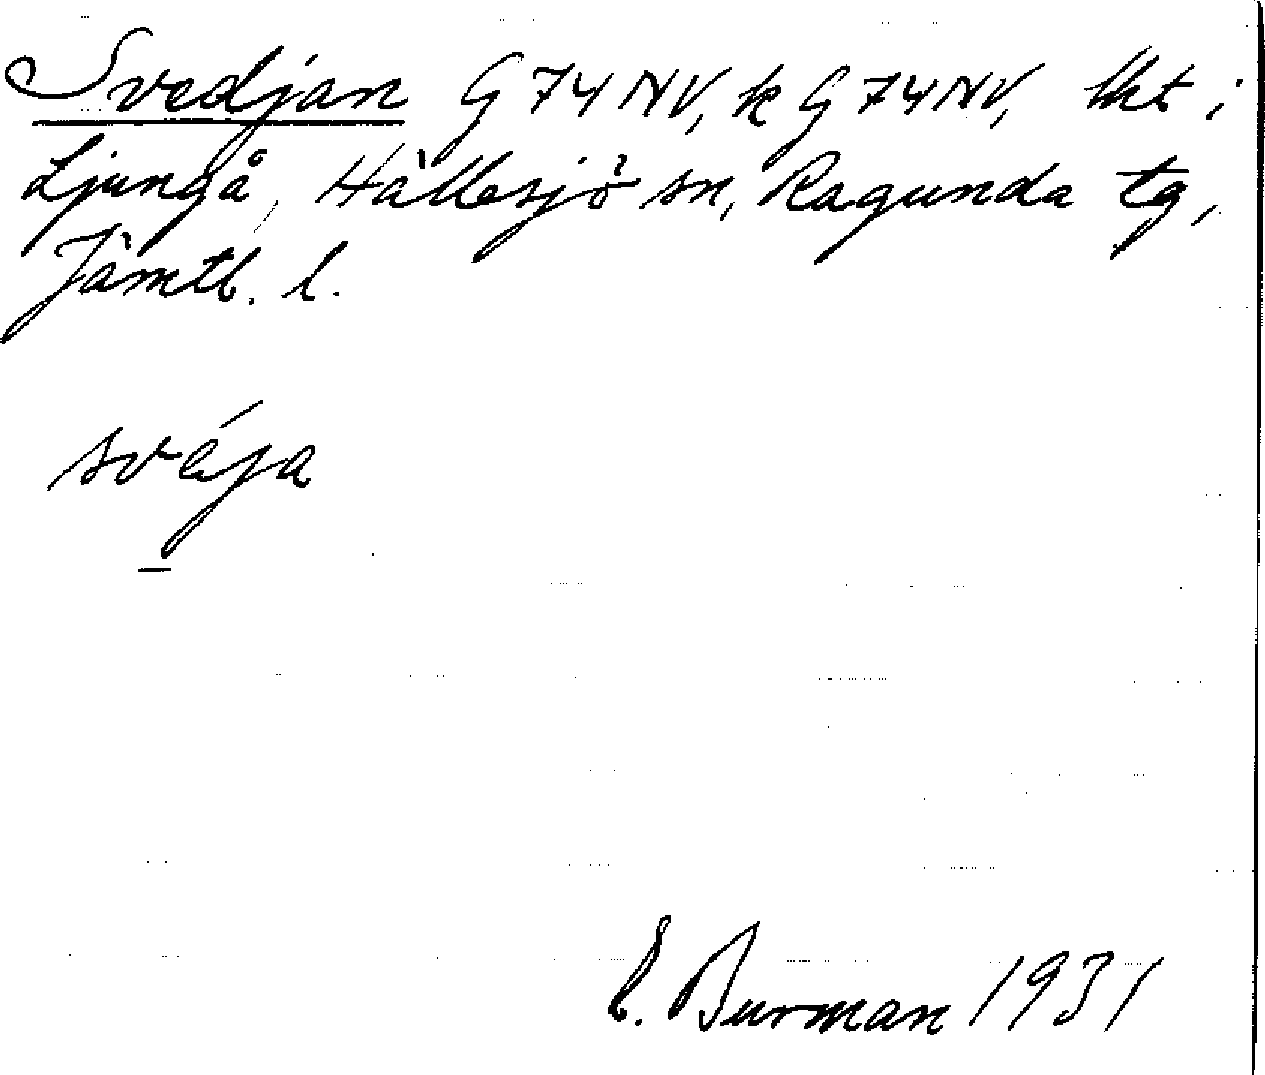 Svedjan G 74 NV, k G 74 NV, lht i
Ljungå, Hällesjö sn, Ragunda tg,
Jämtl. l.
svéja
E. Burman 1931